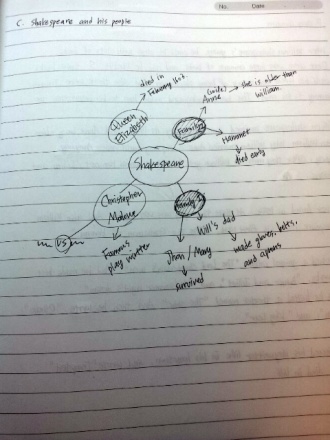 No.
Date
C. Shakespeare and his people
died in
(wife)
Anne → she is older than
William.
Queen
Elizabeth
Family
Hamnet
died early
Shakespeare
Christopher
Malowe
Family
Will's dad
vs
Famous
play writter
Jhon / Mary
made gloves, belts,
and aprons
survived